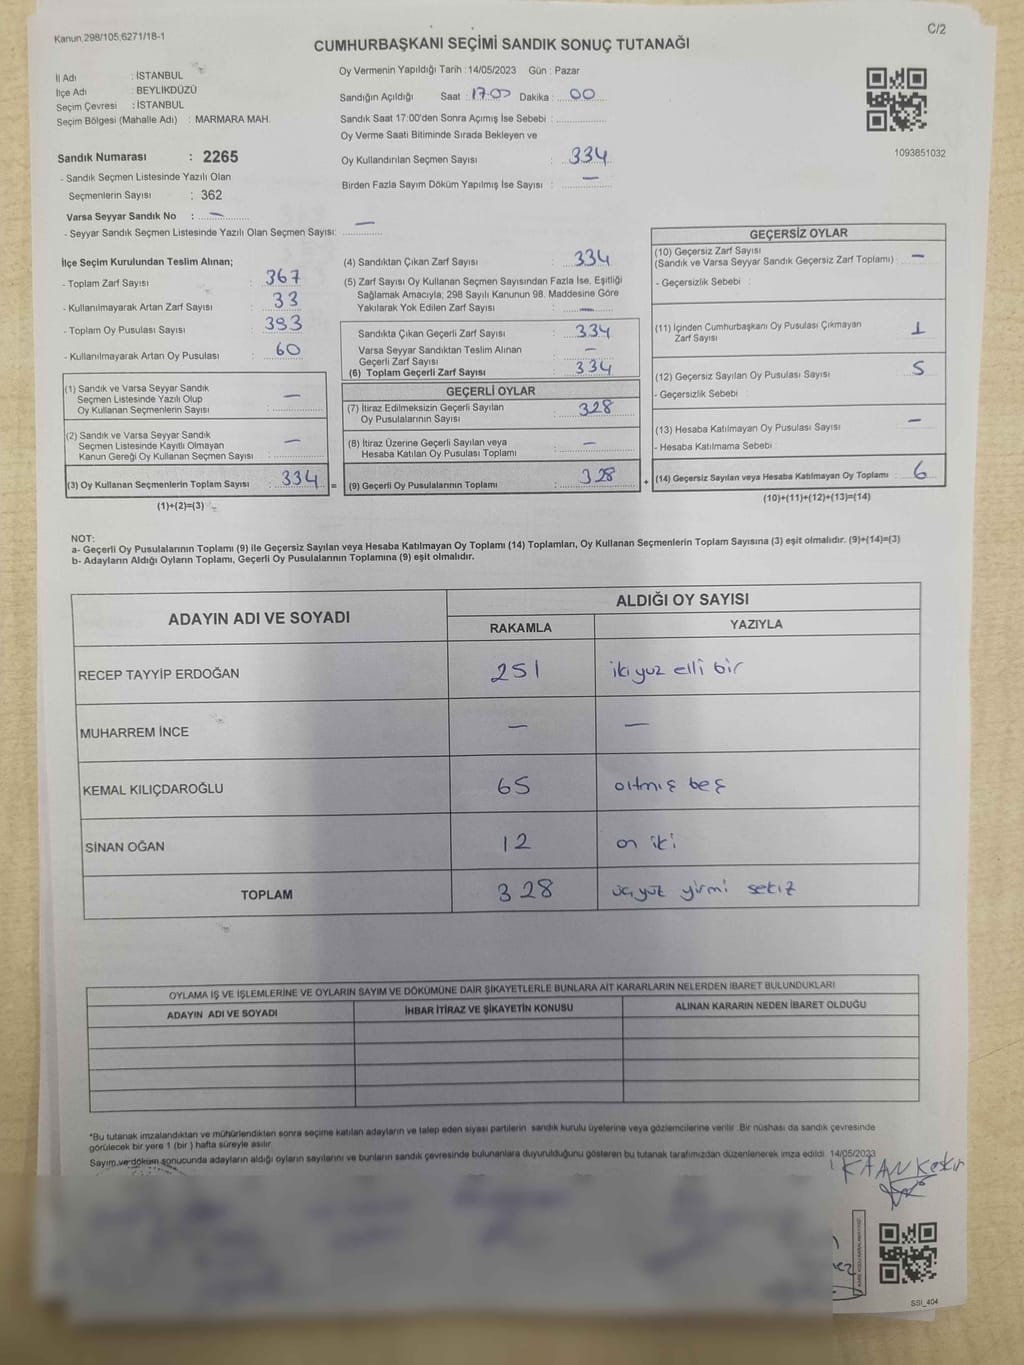 Kanun.298/105;6271/18-1
C/2
CUMHURBAŞKANI SEÇİMİ SANDIK SONUÇ TUTANAĞI
İl Adı : İSTANBUL
İlçe Adı : BEYLİKDÜZÜ
Seçim Çevresi : İSTANBUL
Seçim Bölgesi (Mahalle Adı) : MARMARA MAH.
Oy Vermenin Yapıldığı Tarih : 14/05/2023 Gün : Pazar
Sandığın Açıldığı Saat : 17:00 Dakika : 00
Sandık Saat 17:00'den Sonra Açımış İse Sebebi :
Oy Verme Saati Bitiminde Sırada Bekleyen ve
Oy Kullandırılan Seçmen Sayısı : 334
Birden Fazla Sayım Döküm Yapılmış İse Sayısı : —
1093851032
Sandık Numarası : 2265
- Sandık Seçmen Listesinde Yazılı Olan
Seçmenlerin Sayısı : 362
Varsa Seyyar Sandık No : —
- Seyyar Sandık Seçmen Listesinde Yazılı Olan Seçmen Sayısı: —
İlçe Seçim Kurulundan Teslim Alınan;
- Toplam Zarf Sayısı : 367
- Kullanılmayarak Artan Zarf Sayısı : 33
- Toplam Oy Pusulası Sayısı : 393
- Kullanılmayarak Artan Oy Pusulası : 60
(1) Sandık ve Varsa Seyyar Sandık
Seçmen Listesinde Yazılı Olup
Oy Kullanan Seçmenlerin Sayısı : —
(2) Sandık ve Varsa Seyyar Sandık
Seçmen Listesinde Kayıtlı Olmayan
Kanun Gereği Oy Kullanan Seçmen Sayısı : —
(3) Oy Kullanan Seçmenlerin Toplam Sayısı : 334
(1)+(2)=(3)
(4) Sandıktan Çıkan Zarf Sayısı : 334
(5) Zarf Sayısı Oy Kullanan Seçmen Sayısından Fazla İse, Eşitliği
Sağlamak Amacıyla; 298 Sayılı Kanunun 98. Maddesine Göre
Yakılarak Yok Edilen Zarf Sayısı : —
Sandıkta Çıkan Geçerli Zarf Sayısı : 334
Varsa Seyyar Sandıktan Teslim Alınan
Geçerli Zarf Sayısı : —
(6) Toplam Geçerli Zarf Sayısı : 334
GEÇERLİ OYLAR
(7) İtiraz Edilmeksizin Geçerli Sayılan
Oy Pusulalarının Sayısı : 328
(8) İtiraz Üzerine Geçerli Sayılan veya
Hesaba Katılan Oy Pusulası Toplamı : —
= (9) Geçerli Oy Pusulalarının Toplamı : 328
GEÇERSİZ OYLAR
(10) Geçersiz Zarf Sayısı
(Sandık ve Varsa Seyyar Sandık Geçersiz Zarf Toplamı) : —
- Geçersizlik Sebebi :
(11) İçinden Cumhurbaşkanı Oy Pusulası Çıkmayan
Zarf Sayısı : 1
(12) Geçersiz Sayılan Oy Pusulası Sayısı : 5
- Geçersizlik Sebebi :
(13) Hesaba Katılmayan Oy Pusulası Sayısı : —
- Hesaba Katılmama Sebebi :
+ (14) Geçersiz Sayılan veya Hesaba Katılmayan Oy Toplamı : 6
(10)+(11)+(12)+(13)=(14)
NOT:
a- Geçerli Oy Pusulalarının Toplamı (9) ile Geçersiz Sayılan veya Hesaba Katılmayan Oy Toplamı (14) Toplamları, Oy Kullanan Seçmenlerin Toplam Sayısına (3) eşit olmalıdır. (9)+(14)=(3)
b- Adayların Aldığı Oyların Toplamı, Geçerli Oy Pusulalarının Toplamına (9) eşit olmalıdır.
ADAYIN ADI VE SOYADI
ALDIĞI OY SAYISI
RAKAMLA YAZIYLA
RECEP TAYYİP ERDOĞAN 251 iki yüz elli bir
MUHARREM İNCE — —
KEMAL KILIÇDAROĞLU 65 altmış beş
SİNAN OĞAN 12 on iki
TOPLAM 328 üçyüz yirmi sekiz
OYLAMA İŞ VE İŞLEMLERİNE VE OYLARIN SAYIM VE DÖKÜMÜNE DAİR ŞİKAYETLERLE BUNLARA AİT KARARLARIN NELERDEN İBARET BULUNDUKLARI
ADAYIN ADI VE SOYADI İHBAR İTİRAZ VE ŞİKAYETİN KONUSU ALINAN KARARIN NEDEN İBARET OLDUĞU
*Bu tutanak imzalandıktan ve mühürlendikten sonra seçime katılan adayların ve talep eden siyasi partilerin sandık kurulu üyelerine veya gözlemcilerine verilir. Bir nüshası da sandık çevresinde
görülecek bir yere 1 (bir) hafta süreyle asılır.
Sayım ve döküm sonucunda adayların aldığı oyların sayılarını ve bunların sandık çevresinde bulunanlara duyurulduğunu gösteren bu tutanak tarafımızdan düzenlenerek imza edildi. 14/05/2023
KAAN Keskin
SSI_404